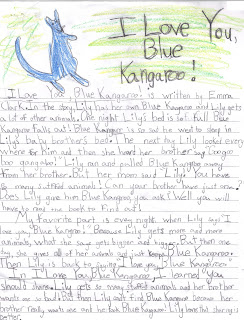 I Love You,
Blue
Kangaroo!
I Love You, Blue Kangaroo! is written by Emma
Clark. In the story, Lily has her own Blue Kangaroo and Lily gets
a lot of other animals. One night Lily's bed is so full Blue
Kangaroo falls out! Blue Kangaroo is so sad he went to sleep in
Lily's baby brother's bed. The next day Lily looked every
where for him and then she heard her brother say "Googoo
boo gangaloo!" Lily ran and pulled Blue Kangaroo away
from her brother. But her mom said "Lily! You have
so many stuffed animals! Can your brother have just one."
Does Lily give him Blue Kangaroo you ask? Well you will
have to read the book to find out!
My favorite part is every night when Lily says "I
love you, Blue Kangaroo!" Because Lily gets more and more
animals, what she says gets bigger and bigger. But then one
day, she gives all of her animals and just keeps Blue Kangaroo.
Then Lily is back to saying I love you, Blue Kangaroo."
In I Love You, Blue Kangaroo I learned you
should share. Lily gets so many stuffed animals and her brother
wants one so bad! But then Lily can't find Blue Kangaroo because her
brother really wants one and he took Blue Kangaroo! Lily learns that sharing is
better.